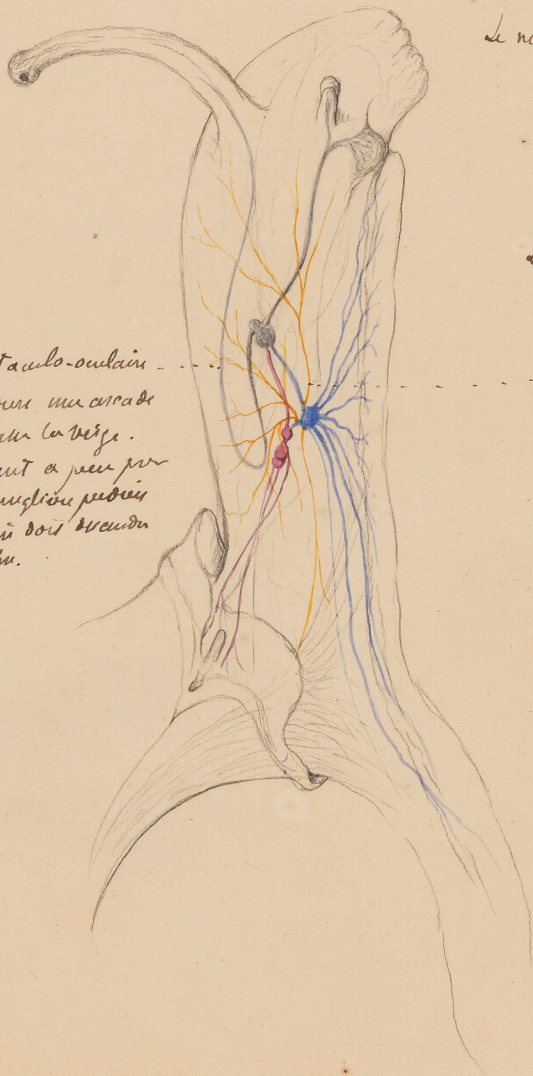 Le n
taculo-oculaire
une arcade
sur la verge.
ant a peu pres
anglion pedieu
doit descendre